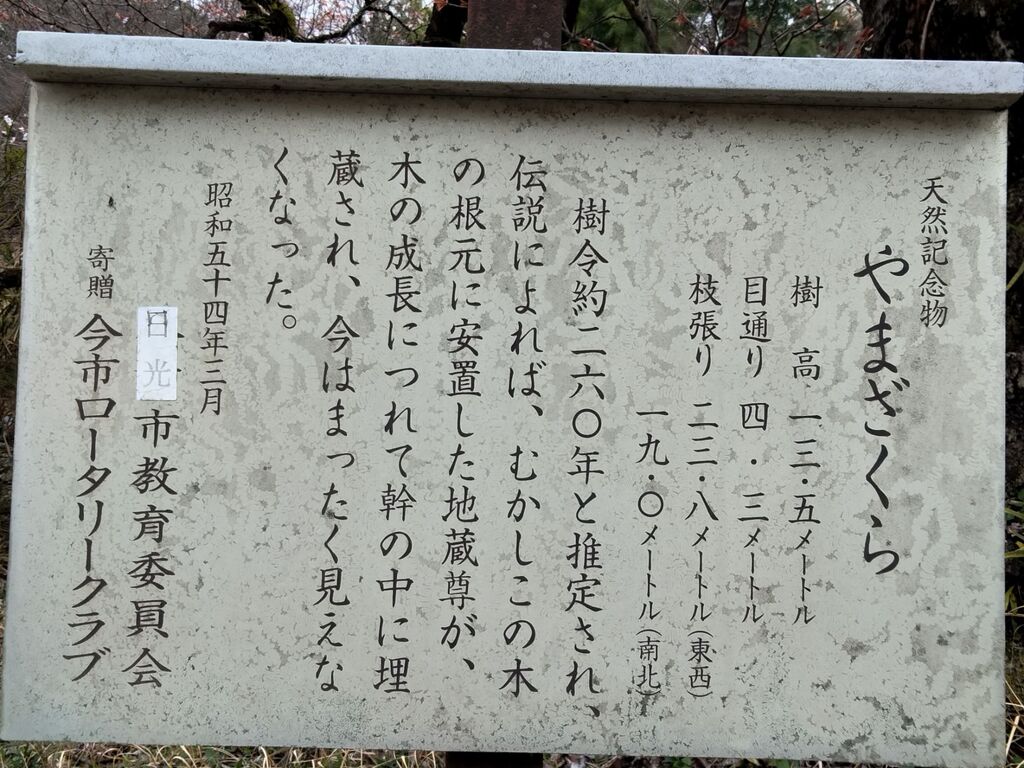 天然記念物
やまざくら
樹　高　一三・五メートル
目通り　四・三メートル
枝張り　二三・八メートル（東西）
一九・〇メートル（南北）
樹令約二六〇年と推定され、
伝説によれば、むかしこの木
の根元に安置した地蔵尊が、
木の成長につれて幹の中に埋
蔵され、今はまったく見えな
くなった。
昭和五十四年三月
日光市教育委員会
寄贈　今市ロータリークラブ